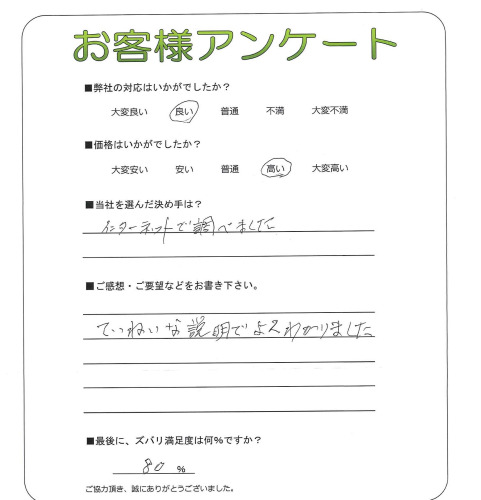 お客様アンケート
■弊社の対応はいかがでしたか？
大変良い 良い 普通 不満 大変不満
■価格はいかがでしたか？
大変安い 安い 普通 高い 大変高い
■当社を選んだ決め手は？
インターネットで調べました
■ご感想・ご要望などをお書き下さい。
ていねいな説明でよくわかりました
■最後に、ズバリ満足度は何%ですか？
80 %
ご協力頂き、誠にありがとうございました。